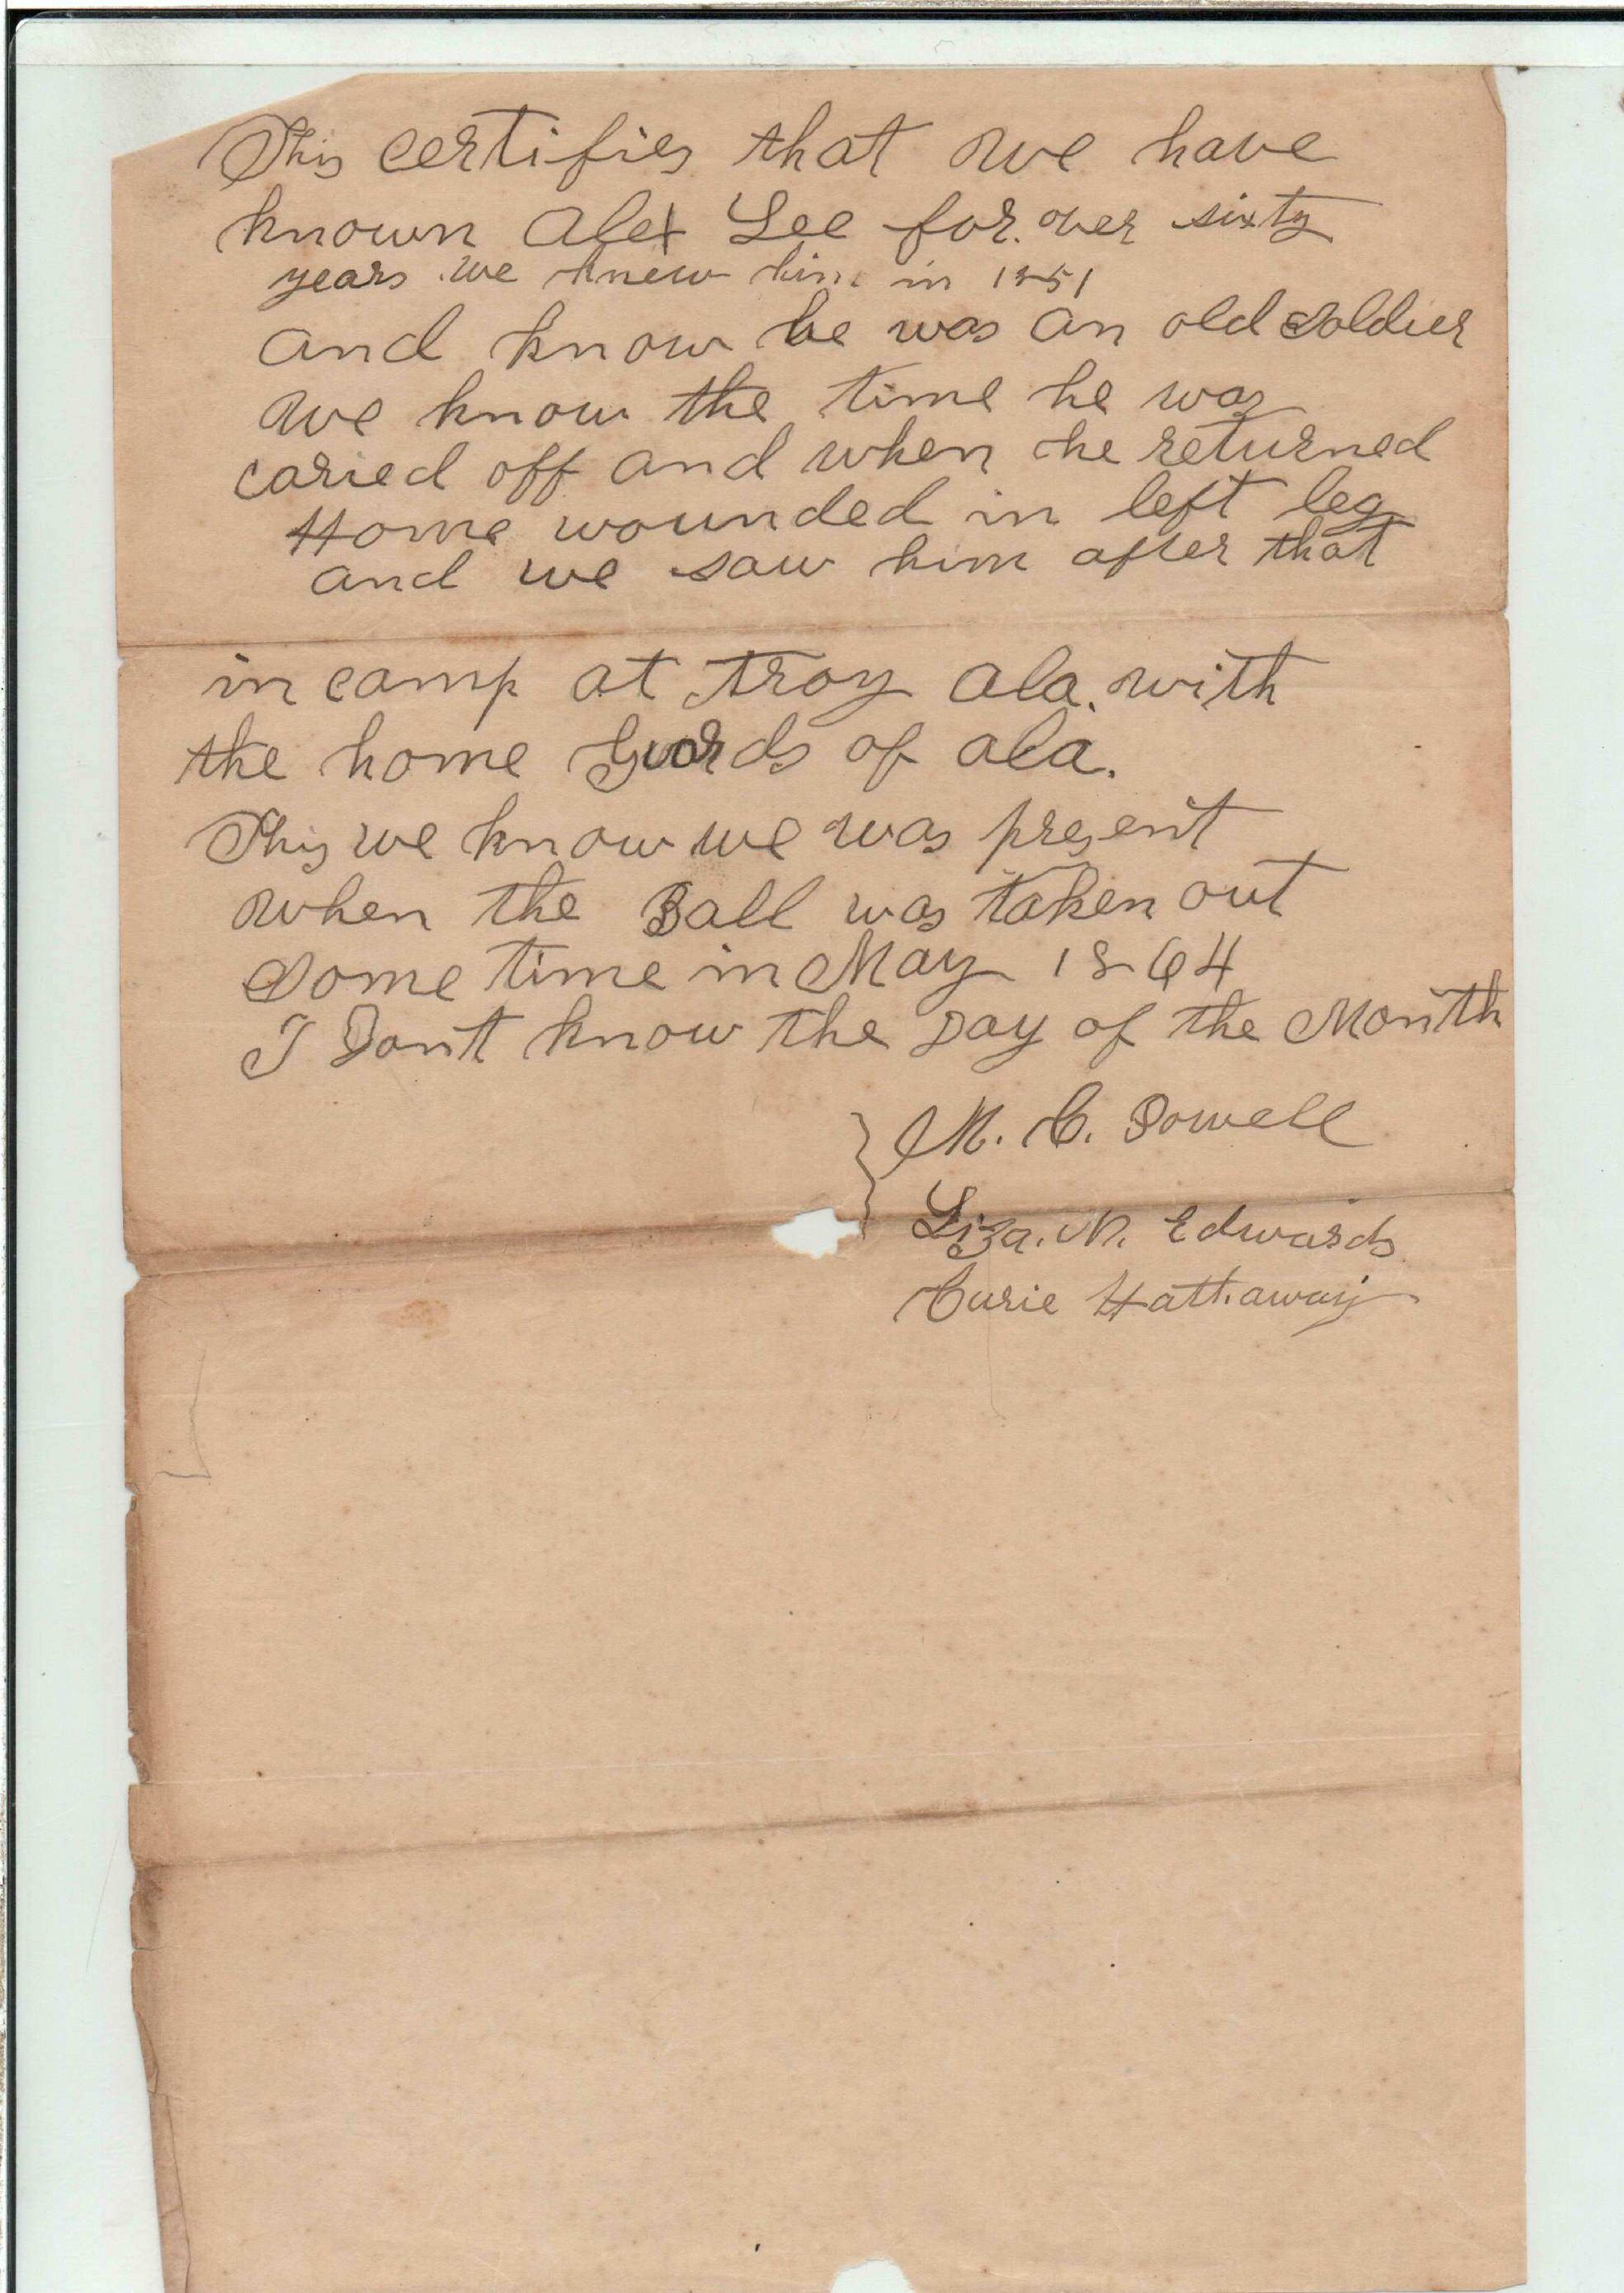 This certifies that we have
known Alex Lee for over sixty
years we knew him in 1851
and know he was an old soldier
we know the time he was
caried off and when he returned
Home wounded in left leg
and we saw him after that
in camp at Troy Ala. with
the home Guards of Ala.
This we know we was present
when the Ball was taken out
Some time in May 1864
I Dont know the Day of the Month
M. C. Powell
Liza. N. Edwards
Curie Hathaway